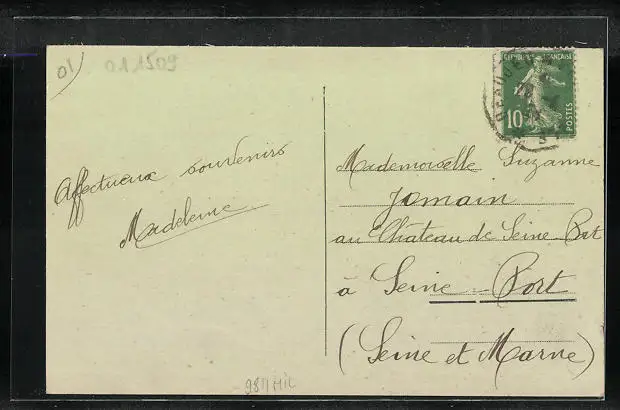 01
01.1509
RÉPUBLIQUE FRANÇAISE
10
POSTES
Affectueux souvenirs
Madeleine
Mademoiselle Suzanne
Jomain
au Château de Seine-Port
à Seine-Port
(Seine et Marne)